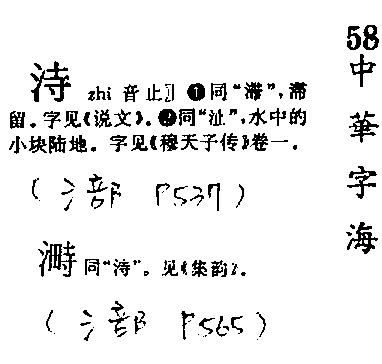 58
中華字海
洔 zhi 音止〗❶同“濸”,滞
留。字见《说文》。❷同“沚”,水中的
小块陆地。字见《穆天子传》卷一。
(氵部 P537)
㴯 同“洔”。见《集韵》。
(氵部 P565)